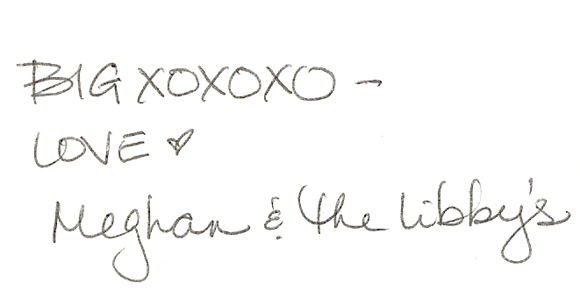 BIG XOXOXO –
LOVE ♥
Meghan & the Libby's